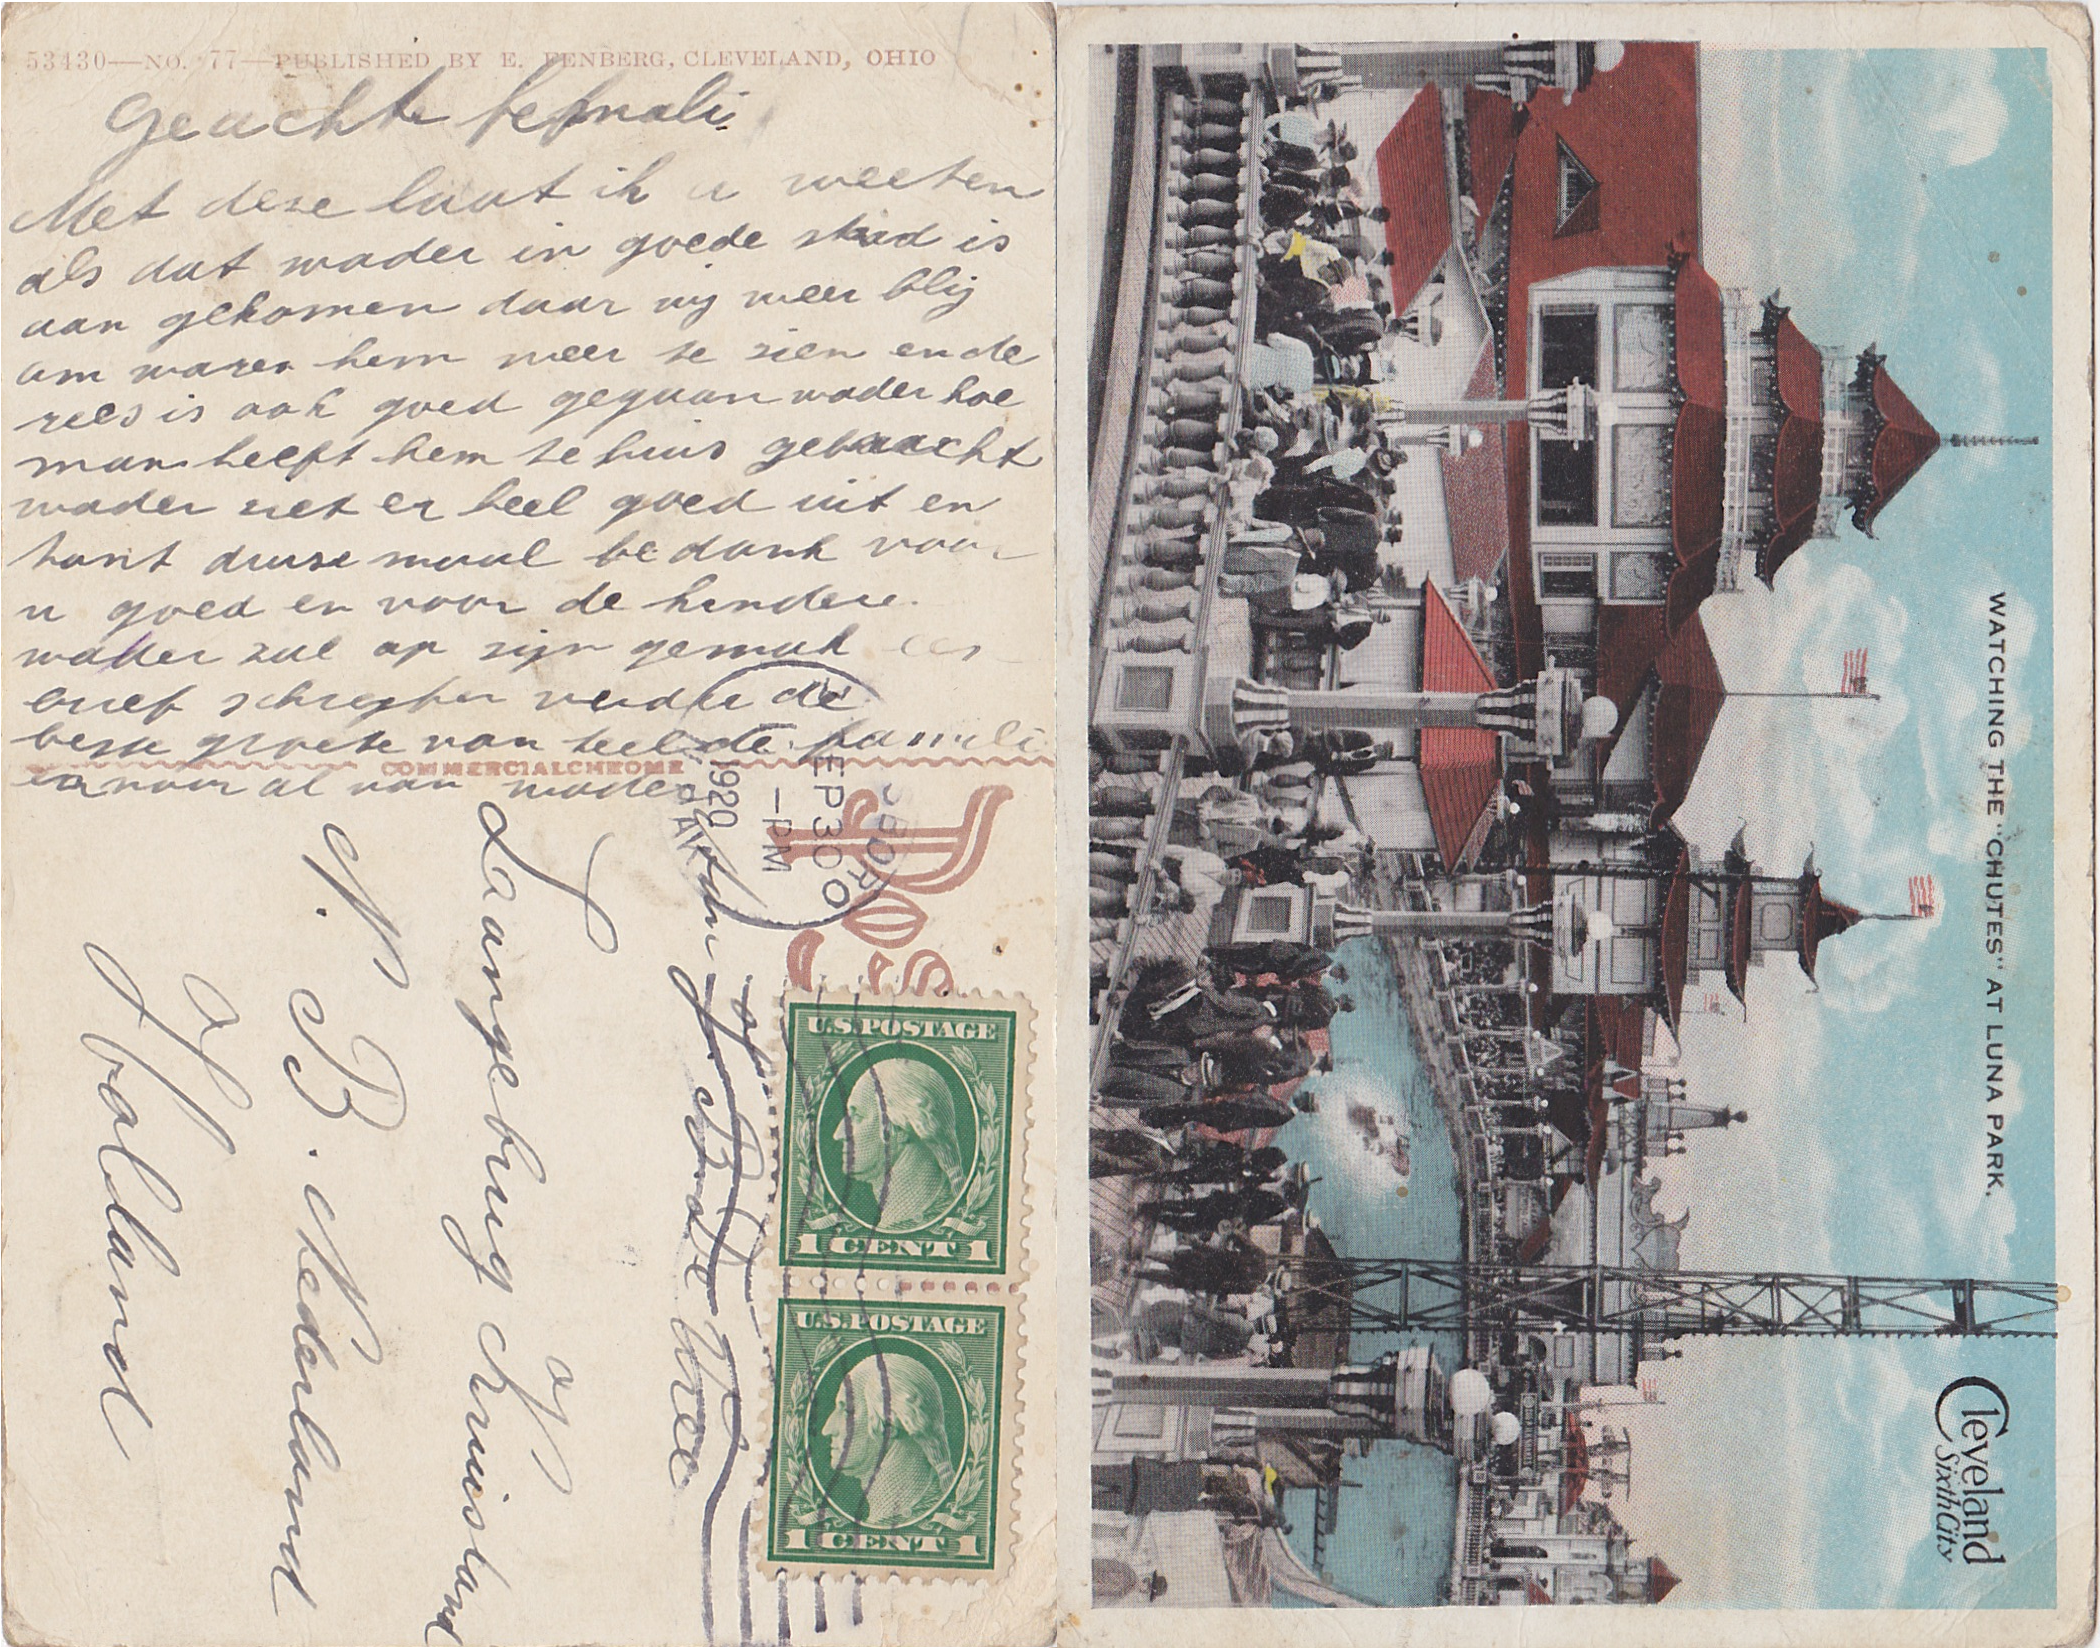 53430—NO. 77—PUBLISHED BY E. FENBERG, CLEVELAND, OHIO
Geachte
Met dese laat ik u weeten
als dat wader in goede stad is
aan gekomen daar wij weer blij
om waren hem weer te sien en de
rees is ook goed gegaan wader hoe
man heeft hem te huis gebraacht
wader siet er heel goed uit en
tant duise maal be dank voor
u goed en voor de kindere.
wader zal op zijn gemak
brief schrepfen verder de
beste groete van heel de famili
en voor al van wader
COMMERCIALCHROME
SEP 30
—PM
1920
Langebrug Kruisland
N. B. Nederland
of
Holland
U.S.POSTAGE
1 CENT 1
U.S.POSTAGE
1 CENT 1
WATCHING THE "CHUTES" AT LUNA PARK.
Cleveland
Sixth City